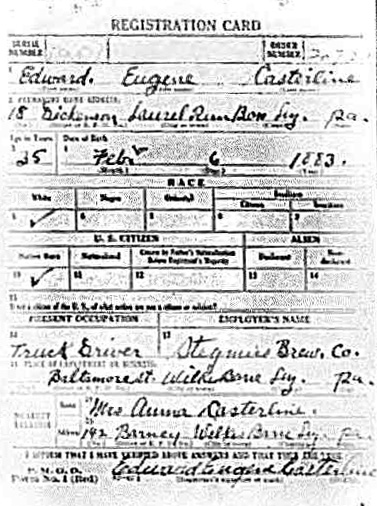 REGISTRATION CARD
SERIAL NUMBER
ORDER NUMBER
1 Edward. Eugene Casterline
2 PERMANENT HOME ADDRESS:
18 Dickenson Laurel Run Boro Pa.
Age in Years Date of Birth
3 4
Feb. 6 1883.
(Month) (Day) (Year)
RACE
White Negro Oriental Indian
Citizen
5 ✓ 6 7 8 9
U. S. CITIZEN ALIEN
Native Born Naturalized Citizen by Father's Naturalization Before Registrant's Majority Declarant Non-declarant
10 ✓ 11 12 13 14
15
If not a citizen of the U. S., of what nation are you a citizen or subject?
PRESENT OCCUPATION EMPLOYER'S NAME
16 17
Truck Driver Brew. Co.
18 PLACE OF EMPLOYMENT OR BUSINESS:
Baltimore st. Wilkes Barre Pa.
NEAREST RELATIVE
Name Mrs Anna Casterline.
Address 142 Barney Wilkes Barre Pa
I AFFIRM THAT I HAVE VERIFIED ABOVE ANSWERS AND THAT THEY ARE TRUE
P. M. G. O.
Form No. 1 (Red) Edward Eugene Casterline